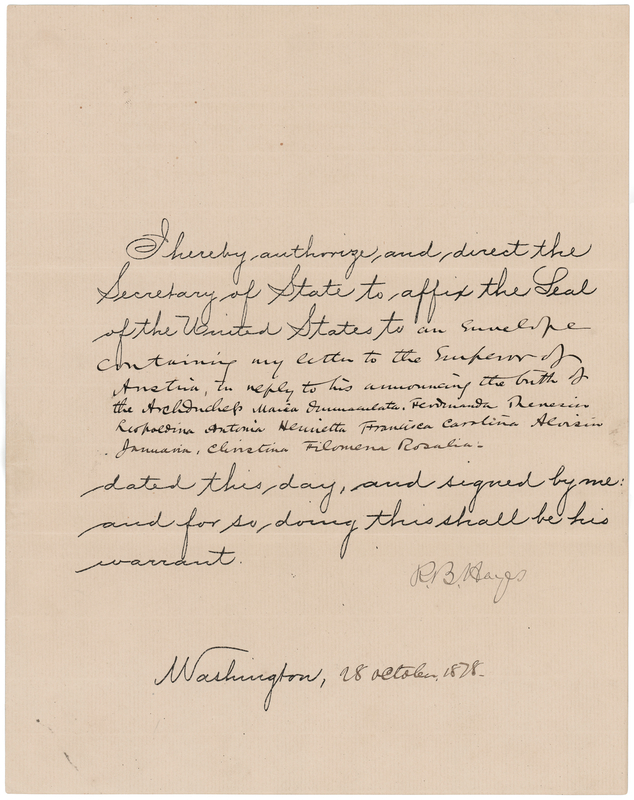 I hereby authorize and direct the
Secretary of State to affix the Seal
of the United States to an Envelope
containing my letter to the Emperor of
Austria, in reply to his announcing the birth of
the Archduchess Maria Immaculata. Ferdinanda Theresia
Leopoldina Antonia Henrietta Francisca Carolina Aloisia
Januaria, Christina Filomena Rosalia-
dated this day, and signed by me:
and for so doing this shall be his
warrant.
R.B. Hayes
Washington, 28 October, 1878.